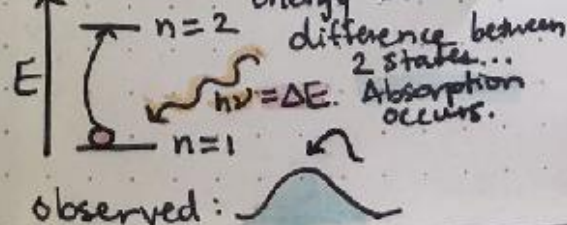 energy
n=2 difference between
2 states...
E hν=ΔE. Absorption
occurs.
n=1
observed: